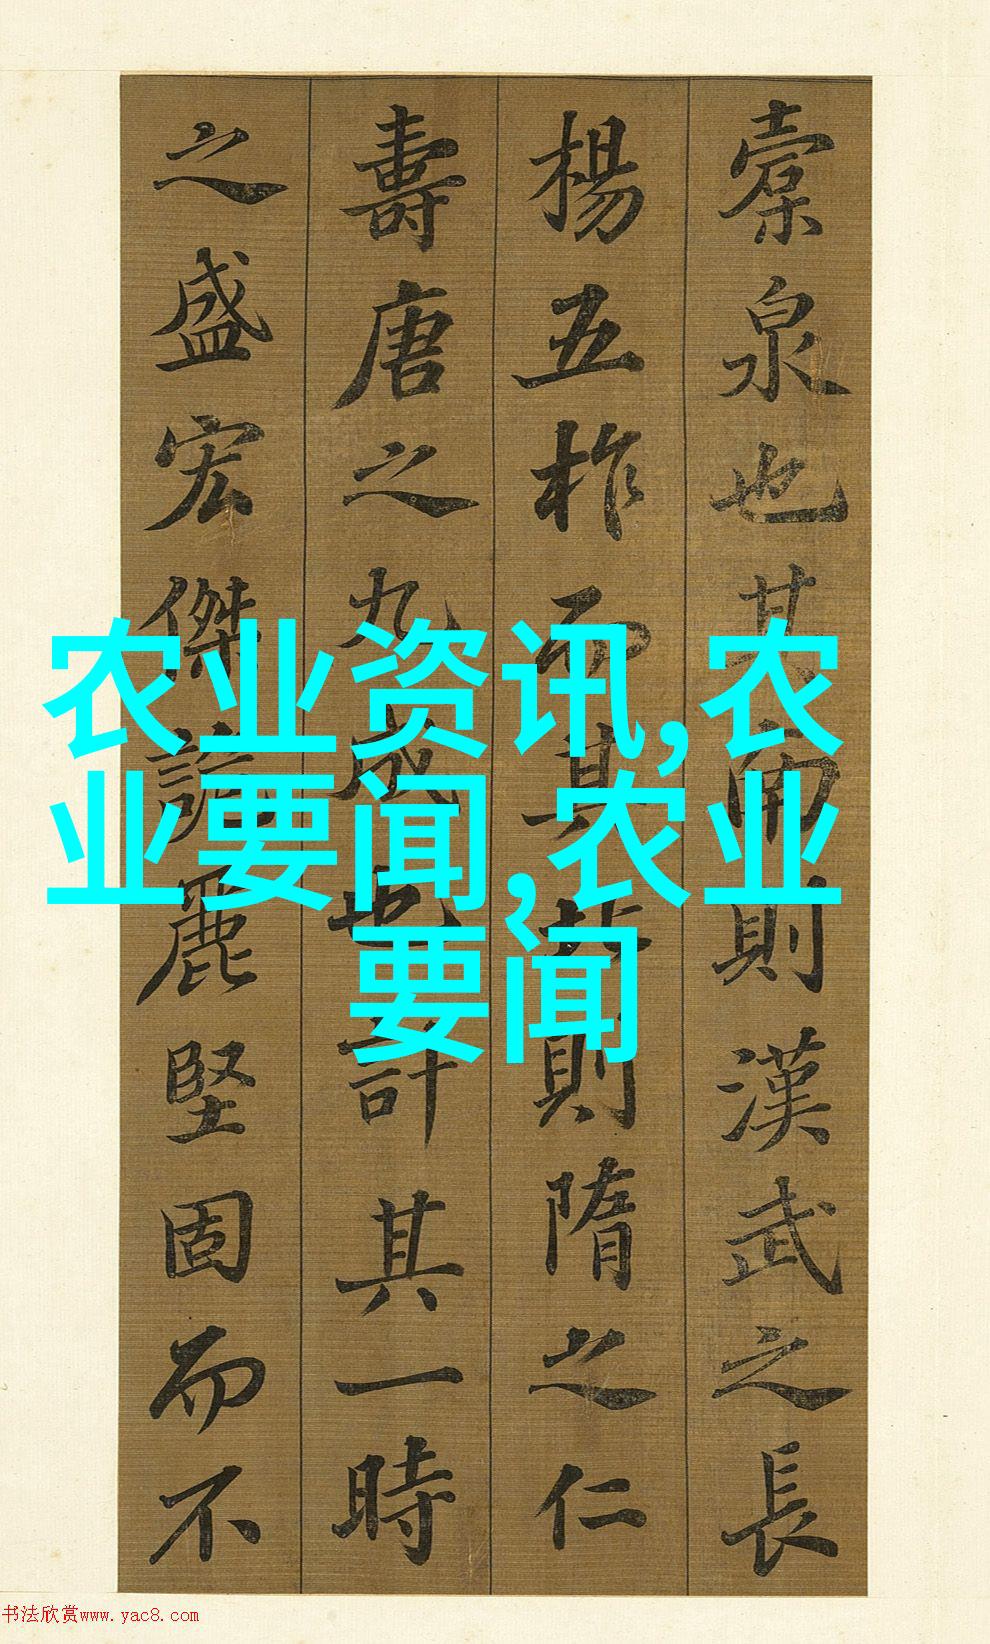 橐泉也其南則漢武之長
楊五柞而其北則隋之仁
壽唐之九成也計其一時
之盛宏傑詭麗堅固而不
农业资讯,农
业要闻,农业
要闻
书法欣赏www.yac8.com